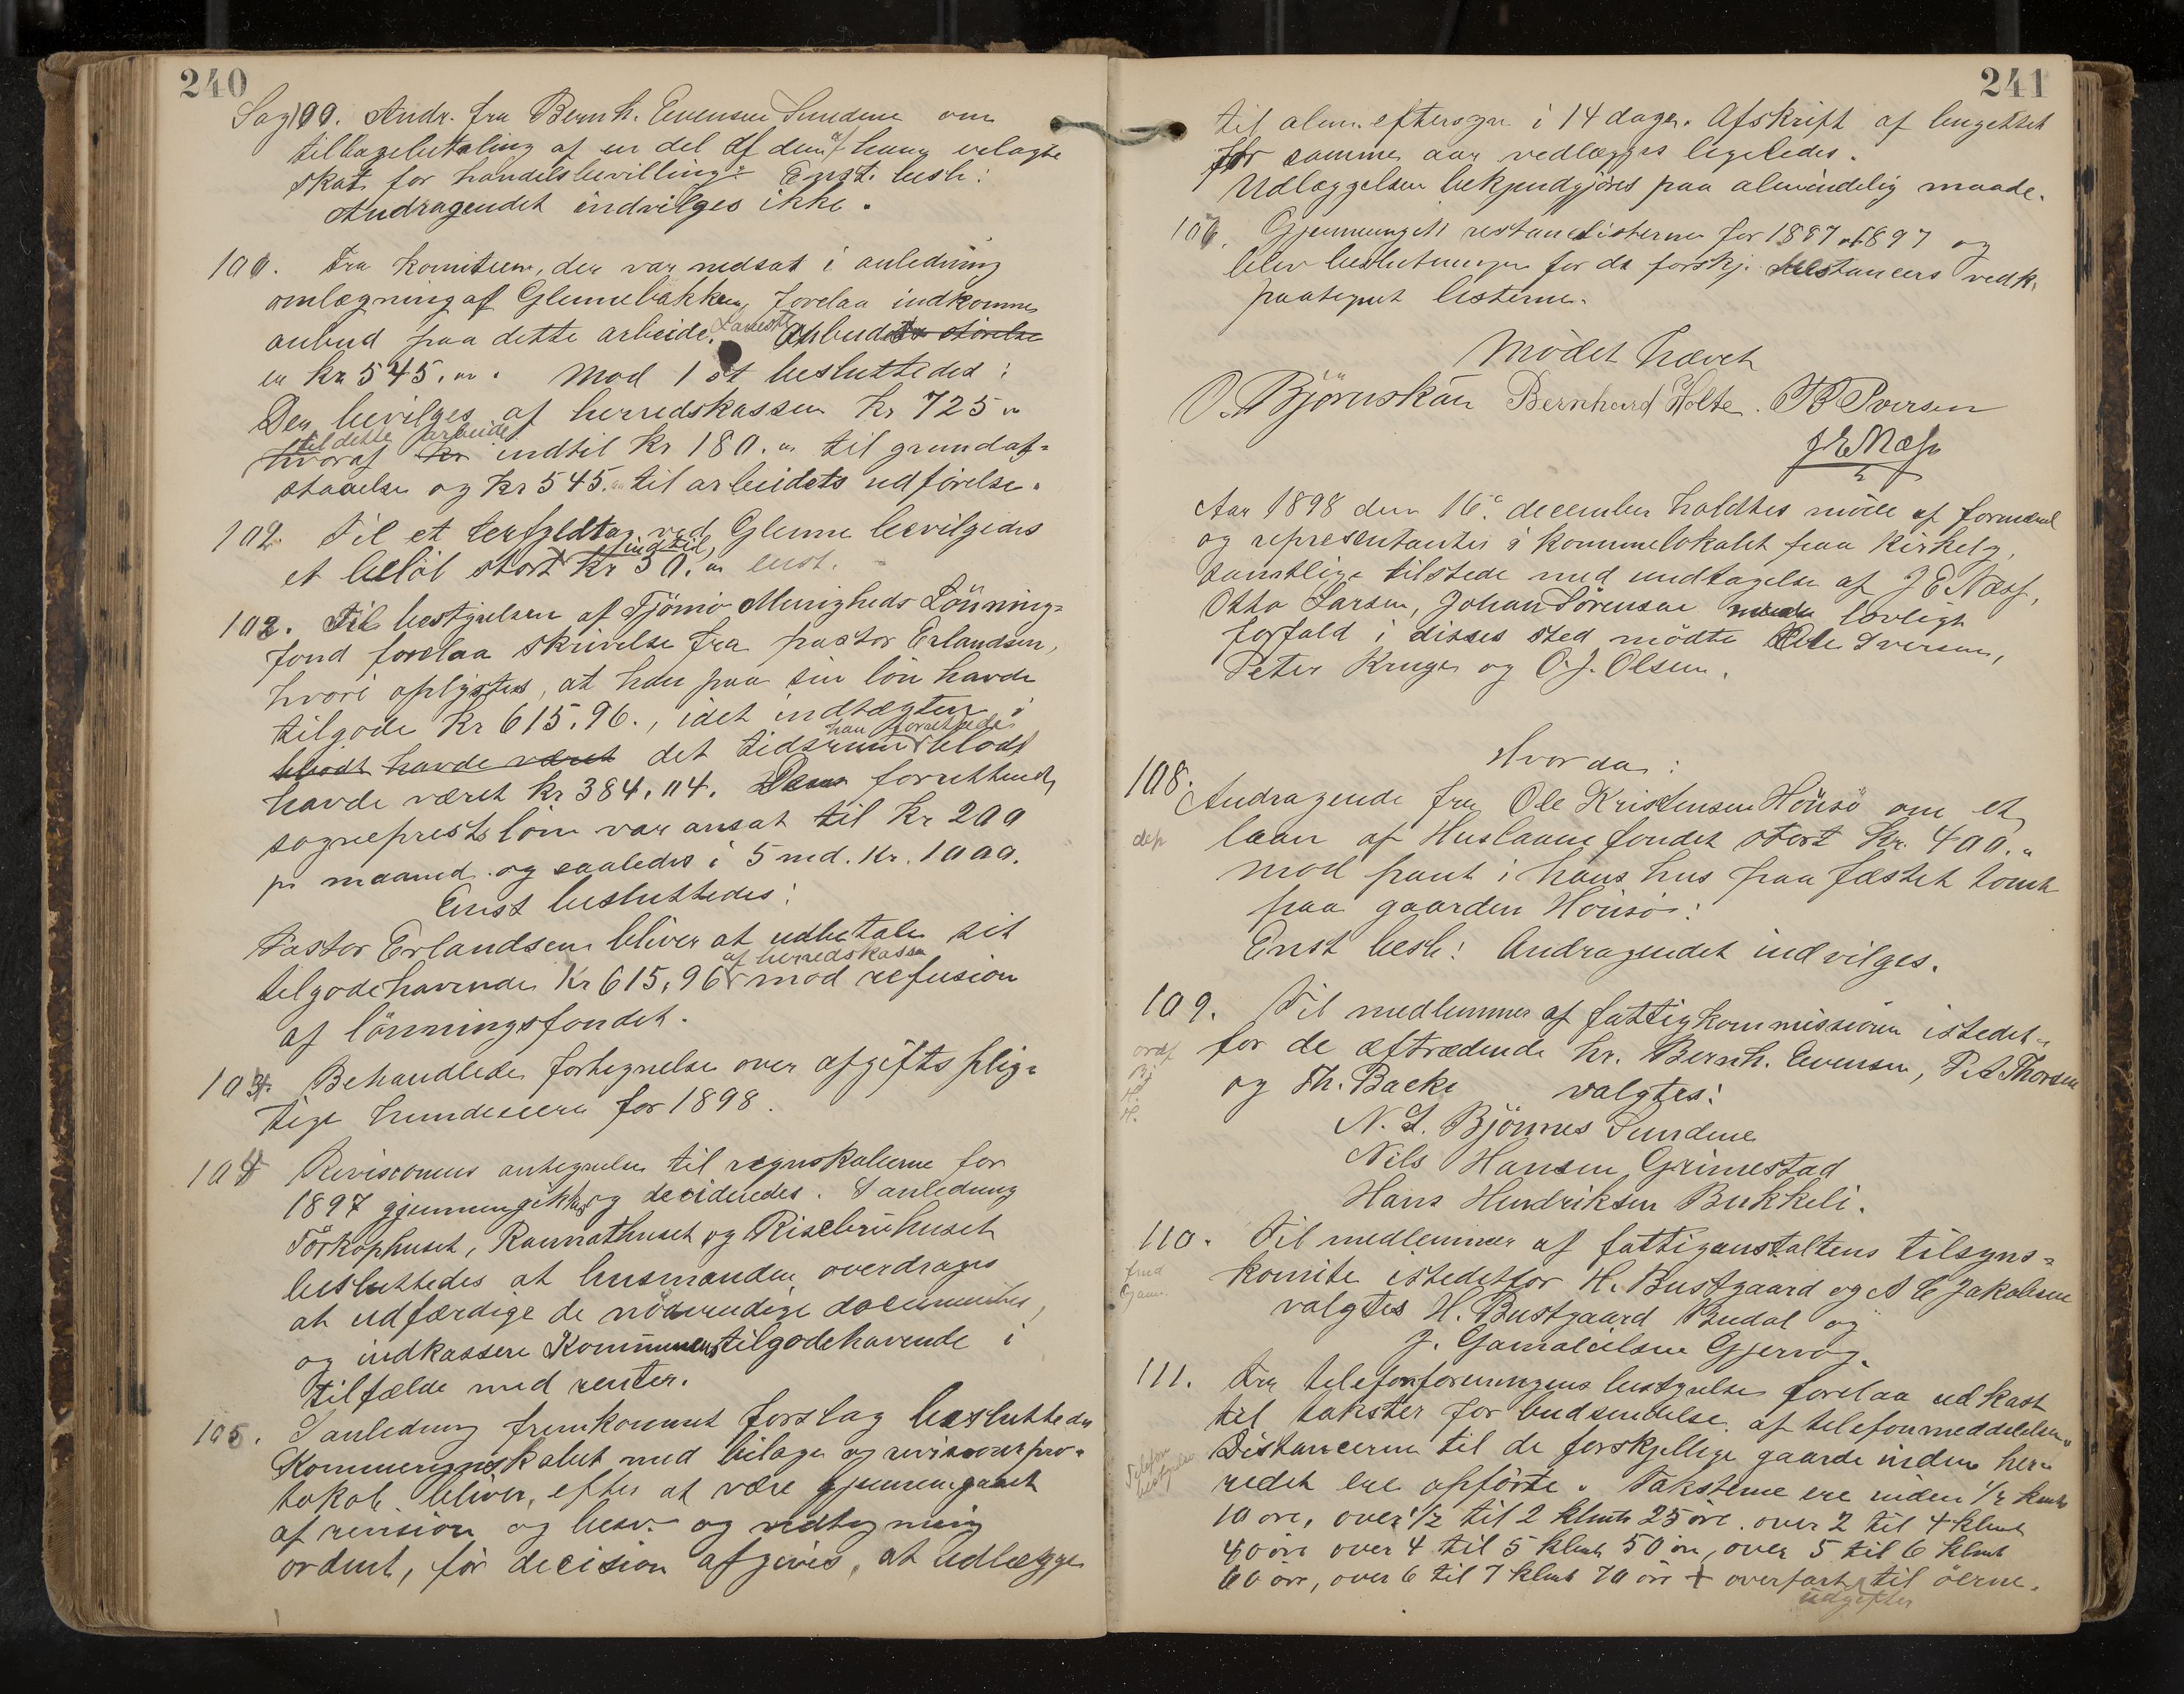 240
Sag 99. Andr. fra Bernh. Evensen Sundene om
tilbagebetaling af en del af den af ham erlagte
skat for handelsbevilling. Enst. besl:
Andragendet indvilges ikke.
100. Fra komiteen, der var nedsat i anledning
omlægning af Glennebakken, forelaa indkomne
anbud paa dette arbeide. Laveste anbuds størelse
er Kr 545. Mod 1 st besluttedes:
Der bevilges af herredskassen Kr 725
til dette arbeide
hvoraf kr indtil Kr 180. til grundaf-
staaelse og Kr 545. til arbeidets udførelse.
102. Til et ved Glenne bevilgedes
indtil
et beløb stort Kr 50. enst.
102. Til bestyrelsen af Tjömö Menigheds Lönning-
fond forelaa skrivelse fra pastor Erlandsen,
hvori oplystes, at han paa sin lön havde
tilgode Kr 615.96., idet indtægten i
han forrettede
blodt havde været det tidsrum blodt
havde været Kr 384.04. forrettende
sogneprests lön var ansat til Kr 200
pr maaned og saaledes i 5 md. Kr. 1000.
Enst besluttedes:
Pastor Erlandsen bliver at udbetale sit
af herredskassen
tilgodehavende Kr 615,96 mod refusion
af lönningsfondet.
103. Behandledes fortegnelse over afgiftsplig-
tige hundeeiere for 1898.
104 Revisionens antegnelser til regnskaberne for
1897 gjennemgikkes og decideredes. I anledning
Törkophuset, Ramnathuset og Risebruhuset
besluttedes at husmanden overdrages
at udfærdige de nödvendige documenter,
og indkassere Kommunens tilgodehavende i
tilfælde med renter.
105. I anledning fremkommet forslag besluttedes
Kommeregnskabet med bilage og revisionspro-
tokol bliver, efter at være gjennemgaaet
af revision og besv. og vedtegning
ordent, för decision afgives, at udlægge
241
til alm. eftersyn i 14 dager. Afskrift af bugettet
for samme aar vedlægges ligeledes.
Udlæggelsen bekjendgjöres paa almindelig maade.
106. Gjennemgaet restancelisterne for 1897 og
blev beslutninger for de forskj. restancers vedk.
paategnet listerne.
Mödet hævet
O. Björnskau Bernhard Holte. B Iversen
J E Næss
Aar 1898 den 16. december holdtes möde af formænd
og representanter i kommunelokalet paa Kirkely.
Samtlige tilstede med undtagelse af J E Næss,
Otto Larsen, Johan Sörensen lovligt
forfald i disses sted mödte Ole Iversen,
Peter Kruge og O. J. Olsen.
Hvor da:
108. Andragende fra Ole Kristensen Hönsö om et
dep
laan af Huslaanefondet stort Kr. 400.
mod pant i hans hus paa fæstet tomt
paa gaarden Hönsö:
Enst besl: Andragendet indvilges.
109. Til medlemmer af fattigkommissionen istedet-
for de aftrædende hr. Bernh. Evensen, P. A Thorsen
og Th. Bache valgtes:
N. L. Björnnes Sundene
Nils Hansen Grimestad
Hans Hendriksen Bukkeli.
110. Til medlemmer af fattiganstaltens tilsyns-
komite istedetfor H. Bustgaard og A C Jakobsen
valgtes H. Bustgaard Budal og
J. Gamaleilsen Gjervog.
111. Fra telefonforeningens bestyrelse forelaa udkast
til takster for budsendelse af telefonmeddelelser.
Telefon
bestyrelse
Distancerne til de forskjellige gaarde inden her-
redet ere opförte. Taksterne ere inden 1/2 klmt
10 öre, over 1/2 til 2 klmt 25 öre. over 2 til 4 klmt
40 öre over 4 til 5 klmt 50 öre, over 5 til 6 klmt
60 öre, over 6 til 7 klmt 70 öre + overfart til öerne.
udgifter